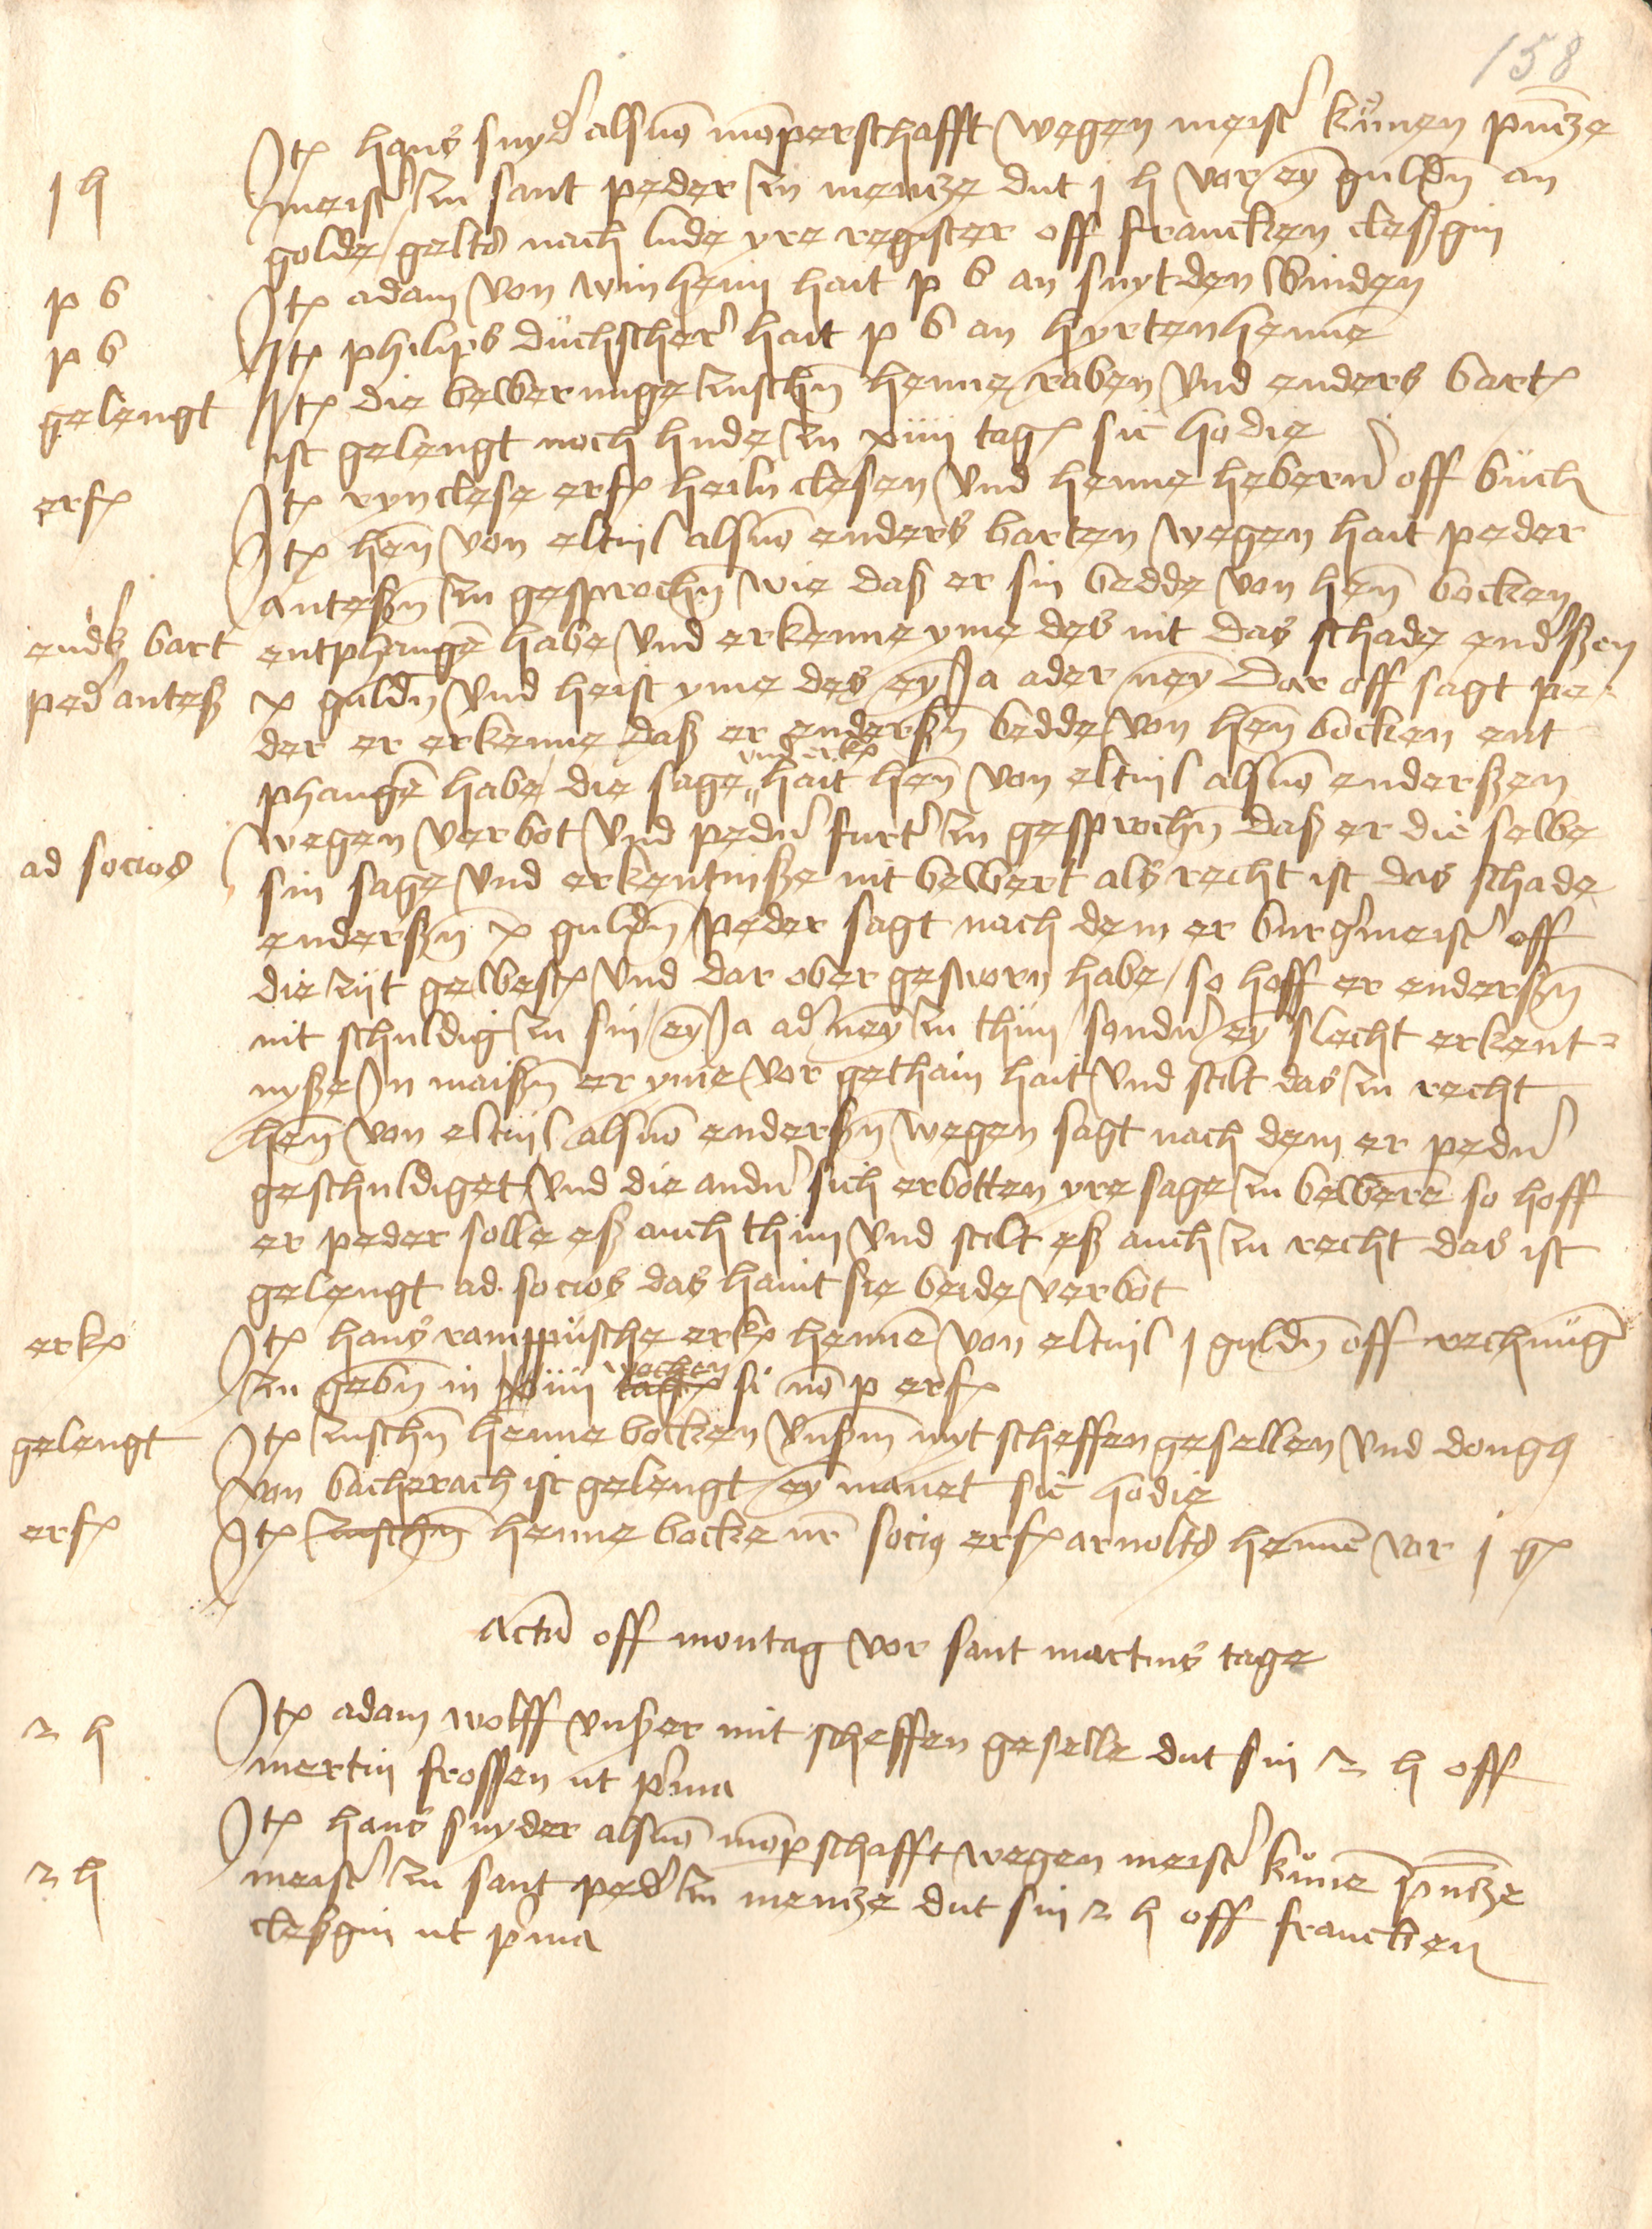 158
Jtem hans snyder als von momperschafft wegen meister kůnen presentze
j h meister zu sant peder zu mentze dut j h vor ey gulden an
golde gelts nach lude yre register off francken cleßgin
p b Jtem adam von winheim hait p b an snytden winden
p b Jtem philips duchscherer hait p b an hyrtenhenne
gelengt Jtem die bewerunge zuschen henne raben vnd enders barten
ist gelengt noch hude zu xiiii tagen sic hodie
erf Jtem ryn clese erf heiln clesen vnd henne heberer off buch
Jtem hen von eltuil als von enders barten wegen hait peder
anteßen zu gesprochen wie daß er sin bedde von hen bocken
enders bart entphangen habe vnd erkenne yme des nit das schade enderßen
peder anteß x gulden vnd heist yme des ey Ja ader ney Dar off sagt pe-
der er erkenne daß er enderßen bedde von hen bocken ent
phangen habe die sage vnd erk hait hen von eltuil als von enderßen
wegen verbot vnd peder furter zu gesprochen daß er die selbe
ad socios sin sage vnd erkentniße nit bewert als recht ist das schade
enderßen x gulden peder sagt nach dem er burgermeister off
die zijt gewest vnd dar ober gesworn habe / so hoff er enderßen
nit schuldig zu sin ey Ja ader ney zu thun sonder ey slecht erkent-
nyße Jn maißen er yme vor gethain hait vnd stilt das zu recht
hen von eltuil als von enderßen wegen sagt nach dem er peder
geschuldiget vnd die ander sich erbotten yre sage zu beweren so hoff
er peder solle eß auch thun vnd stilt eß auch zu recht das ist
gelengt ad socios das haint sie beide verbot
erk Jtem hans ramppusche erk hennen von eltuil j gulden off rechnung
zu geben in xiiii tagen wochen si non p erf
gelengt Jtem zuschen henne bocken vnßerm myt scheffen gesellen vnd dongis
von bacherach ist gelengt ey manet sic hodie
erf Jtem zuschen henne bocke noster socius erf arnolts hennen vor j g
Actum off montag vor sant martins tage
2 h Jtem adam wolff vnßer mit scheffen geselle dut sin 2 h off
mertin frossen ut prima
Jtem hans snyder als von momperschafft wegen meister kůnen presentze
2 h meister zu sant peder zu mentze dut sin 2 h off francken
cleßgin ut prima